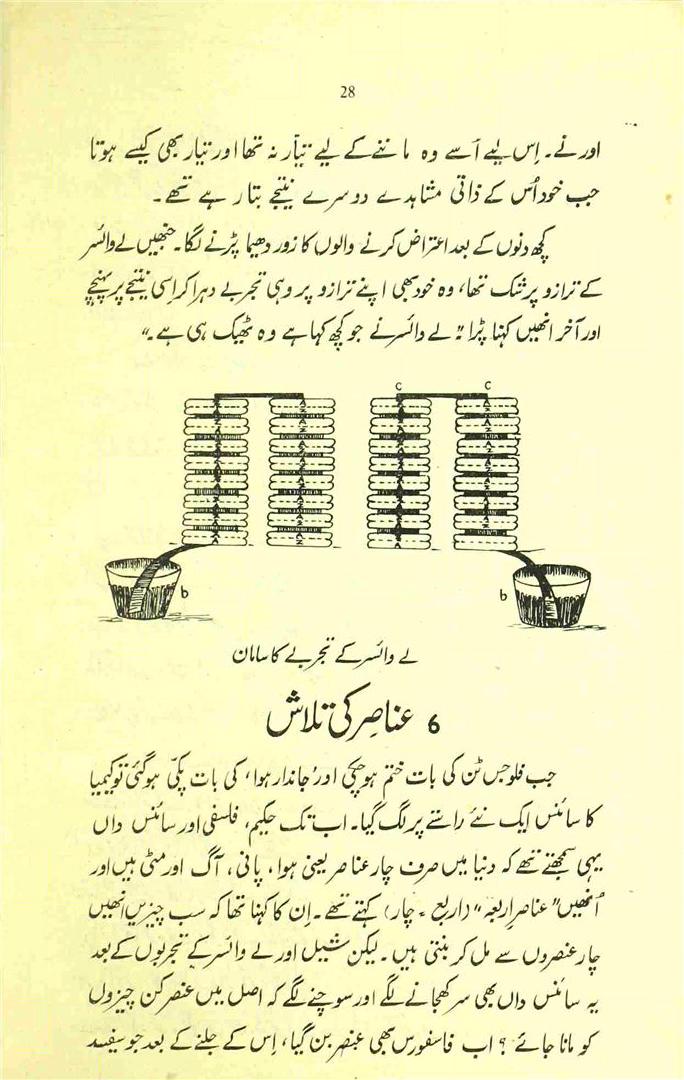 28
اور نے۔ اِس لیے اُسے وہ ماننے کے لیے تیّار نہ تھا اور تیار بھی کیسے ہوتا
جب خود اُس کے ذاتی مشاہدے دوسرے نتیجے بتا رہے تھے۔
کچھ دنوں کے بعد اعتراض کرنے والوں کا زور دھیما پڑنے لگا۔ جنھیں لے وائسر
کے ترازو پر شک تھا، وہ خود بھی اپنے ترازو پر وہی تجربے دہرا کر اِسی نتیجے پر پہنچے
اور آخر انھیں کہنا پڑا "لے وائسر نے جو کچھ کہا ہے وہ ٹھیک ہی ہے۔"
C C
b b
لے وائسر کے تجربے کا سامان
6 عناصِر کی تلاش
جب فلوجس ٹن کی بات ختم ہو چکی اور 'جاندار ہوا، کی بات پکّی ہو گئی تو کیمیا
کا سائنس ایک نئے راستے پر لگ گیا۔ اب تک حکیم، فلسفی اور سائنس داں
یہی سمجھتے تھے کہ دنیا میں صرف چار عناصر یعنی ہوا، پانی، آگ اور مٹّی ہیں اور
اُنھیں "عناصرِ اربعہ" (اربع = چار) کہتے تھے۔ اِن کا کہنا تھا کہ سب چیزیں انھیں
چار عنصروں سے مل کر بنتی ہیں۔ لیکن شیل اور لے وائسر کے تجربوں کے بعد
یہ سائنس داں بھی سر کھجانے لگے اور سوچنے لگے کہ اصل میں عنصر کن چیزوں
کو مانا جائے؟ اب فاسفورس بھی عنصر بن گیا، اِس کے جلنے کے بعد جو سفید